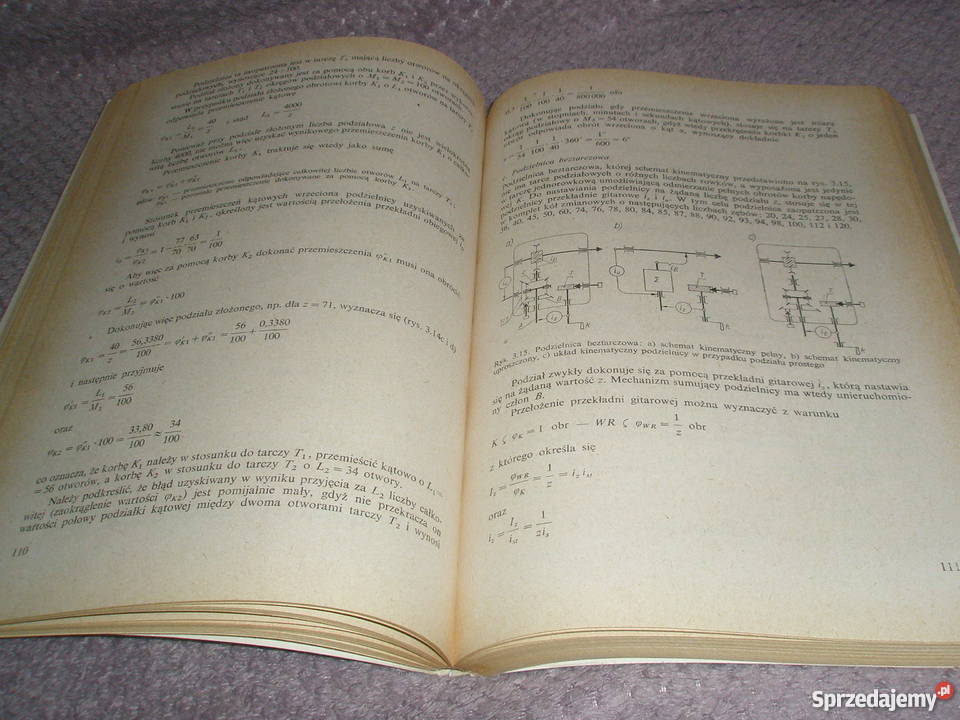 Podzielnica ta zaopatrzona jest w tarczę T₁ mającą liczby otworów na okręgach
podziałowych, wynoszące 24 - 100.
Podział złożony dokonywany jest za pomocą obu korb K₁ i K₂ przez
na tarczach T₁ i T₂ okręgów podziałowych o M₁ = M₂ = 100
W przypadku podziału złożonego obrotowi korby K₁ o L₁ otworów na tarczy T₁
odpowiada przemieszczenie kątowe
40 / z stąd 4000 / z
Ponieważ przy podziale złożonym liczba podziałowa z nie jest
liczby 4000, nie można więc uzyskać wynikowego przemieszczenia korby K₁ o
liczbę otworów L₁.
Przemieszczenie korby K₁ traktuje się wtedy jako sumę
φK1 = φ'K1 + φ''K1
przemieszczenie odpowiadające całkowitej liczbie otworów L₁ na tarczy T₁,
pozostałe przemieszczenie dokonywane za pomocą korby K₂.
Stosunek przemieszczeń kątowych wrzeciona podzielnicy uzyskiwanych za
pomocą korb K₁ i K₂, określony jest wartością przełożenia przekładni obiegowej
i wynosi
= 1 - 77/20 · 63/70 = 1/100
Aby więc za pomocą korby K₂ dokonać przemieszczenia φ''K1 musi ona obrócić
się o wartość
φK2 = L₂/M₂ = φ''K1 · 100
Dokonując więc podziału złożonego, np. dla z = 71, wyznacza się (rys. 3.14c i d)
φK1 = 40/z = 56,3380/100 = φ'K1 + φ''K1 = 56/100 + 0,3380/100
i następnie przyjmuje
φ'K1 = L₁/M₁ = 56/100
oraz
φK2 = φ''K1 · 100 = 33,80/100 ≈ 34/100
co oznacza, że korbę K₁ należy w stosunku do tarczy T₁, przemieścić kątowo o L₁ =
= 56 otworów, a korbę K₂ w stosunku do tarczy T₂ o L₂ = 34 otwory.
Należy podkreślić, że błąd uzyskiwany w wyniku przyjęcia za L₂ liczby całko-
witej (zaokrąglenie wartości φK2) jest pomijalnie mały, gdyż nie przekracza on
wartości połowy podziałki kątowej między dwoma otworami tarczy T₂ i wynosi
110
1/100 · 1/100 · 1/40 = 1/800 000 obr
Dokonując podziału gdy przemieszczenie wrzeciona wyrażone jest miarą
kątową (w stopniach, minutach i sekundach kątowych), stosuje się na tarczy T₁
okrąg podziałowy o M₁ = 54 otworach, gdyż wtedy przekręcenia korbki K₁ o jeden
otwór odpowiada obrót wrzeciona o kąt α, wynoszący dokładnie
1/54 · 1/100 · 1/40 · 360° = 1°/600 = 6"
Podzielnica beztarczowa
Podzielnica beztarczowa, której schemat kinematyczny przedstawiono na rys. 3.15,
nie ma tarcz podziałowych o różnych liczbach otworków, a wyposażona jest jedynie
w tarczę jednorowkową umożliwiającą odmierzanie pełnych obrotów korby napędo-
wej K. Do nastawiania podzielnicy na żądaną liczbę podziału z, stosuje się w tej
podzielnicy przekładnie gitarowe
w komplet kół zmianowych o następujących liczbach zębów: 20, 24, 25, 27, 28, 30,
36, 40, 45, 50, 60, 74, 76, 78, 80, 84, 85, 87, 88, 90, 92, 93, 94, 98, 100, 112 i 120.
a) b) c)
Rys. 3.15. Podzielnica beztarczowa: a) schemat kinematyczny pełny, b) schemat kinematyczny
uproszczony, c) układ kinematyczny podzielnicy w przypadku podziału prostego
Podział zwykły dokonuje się za pomocą przekładni gitarowej iz, którą nastawia
się na żądaną wartość z. Mechanizm sumujący podzielnicy ma wtedy unieruchomio-
ny człon B.
Przełożenie przekładni gitarowej można wyznaczyć z warunku
K ζ φK = 1 obr — WR ζ φWR = 1/z obr
z którego określa się
= φWR/φK = 1/z = iz ist
oraz
iz = Iz/ist = 1/zis
111
Sprzedajemy.pl